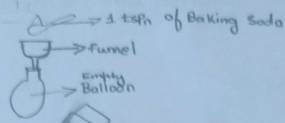 1 tspn of Baking soda
funnel
Empty
Balloon